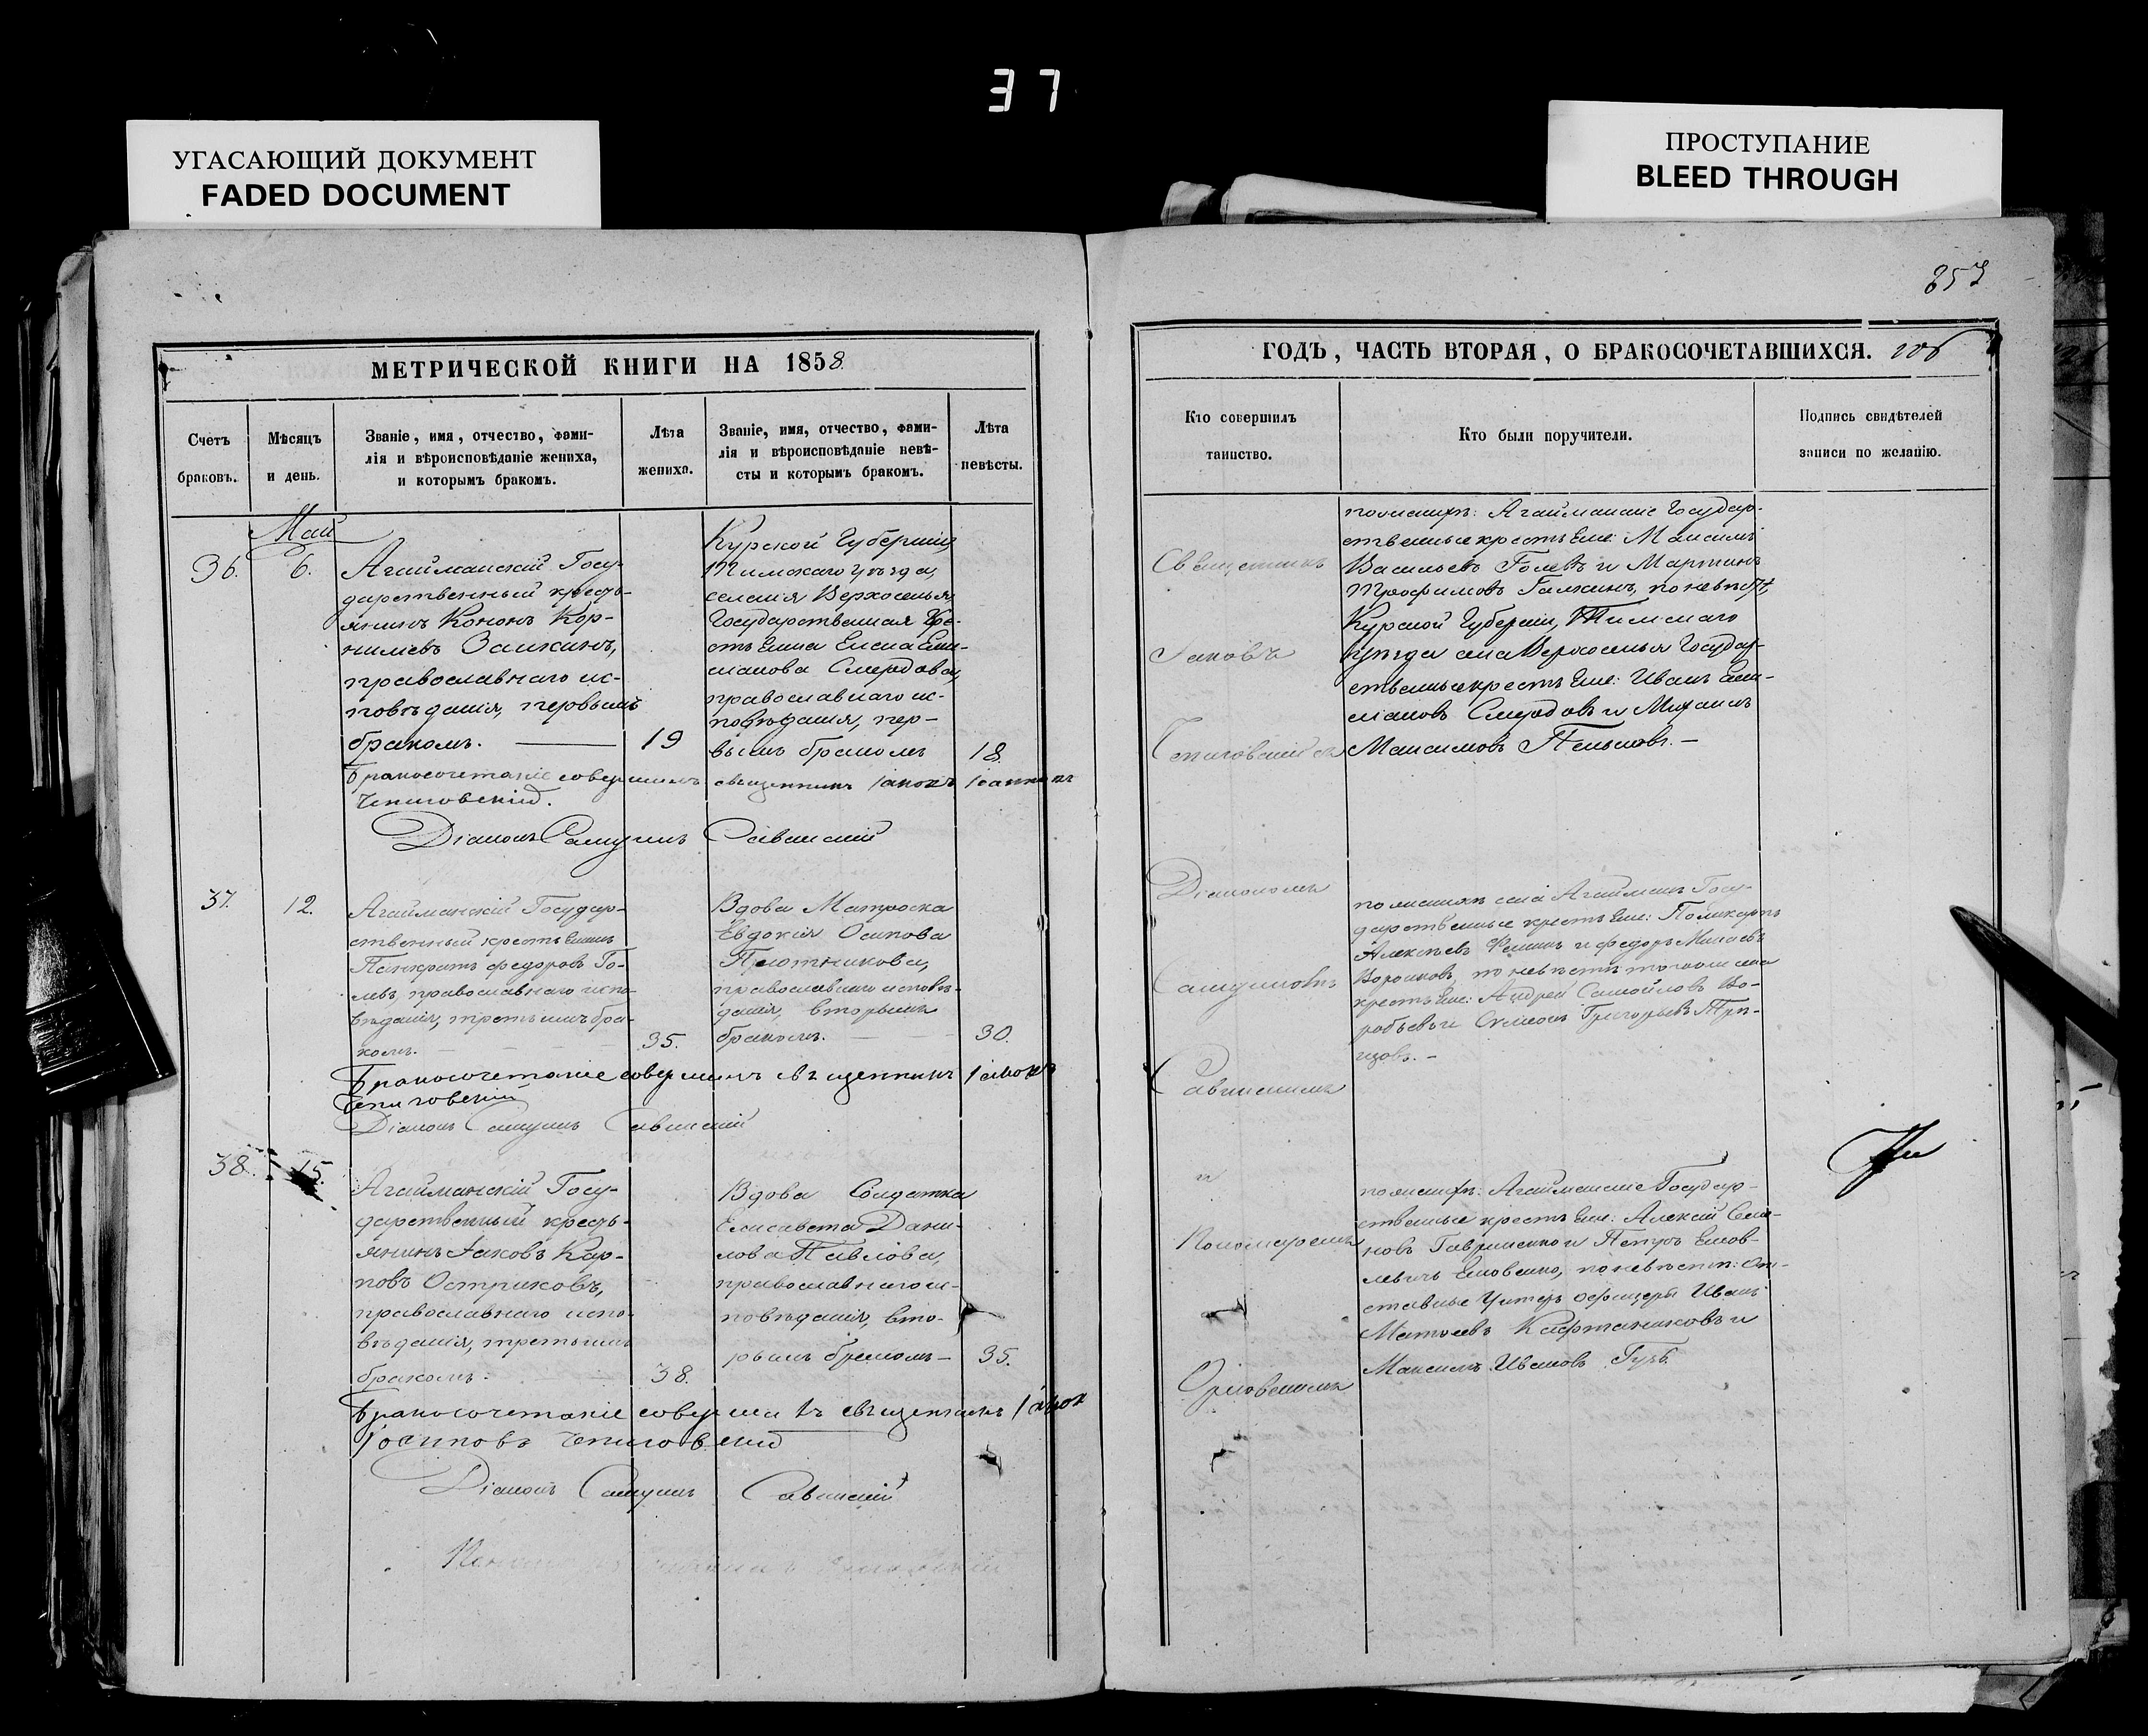 37
УГАСАЮЩИЙ ДОКУМЕНТ
FADED DOCUMENT
ПРОСТУПАНИЕ
BLEED THROUGH
МЕТРИЧЕСКОЙ КНИГИ НА 1858
Счетъ
браковъ.
Мѣсяцъ
и день.
Званіе, имя, отчество, фами-
лія и вѣроисповѣданіе жениха,
и которымъ бракомъ.
Лѣта
жениха.
Званіе, имя, отчество, фами-
лія и вѣроисповѣданіе невѣ-
сты и которымъ бракомъ.
Лѣта
невѣсты.
Май
36.
6.
Агайманскій Госу-
дарственный кресть-
янинъ Кононъ Кор-
нилиевъ Заикинъ,
православнаго ис-
повѣданія, первымъ
бракомъ.
19
Курской Губерніи
Тимскаго уѣзда,
селенія Верхоселья
Государственная Кре-
стьянка Елена
Смердова,
православнаго ис-
повѣданія, пер-
вымъ бракомъ
18.
Бракосочетаніе совершилъ священникъ Іаковъ
Чепиговскій.
Діаконъ Самуилъ Савинскій
37.
12.
Агайманскій Государ-
ственный крестьянинъ
Панкратъ Федоровъ Го-
левъ, православнаго испо-
вѣданія, третьимъ бра-
комъ.
35.
Вдова Матроска
Евдокія Осипова
Плотникова,
православнаго исповѣ-
данія, вторымъ
бракомъ.
30.
Бракосочетаніе совершилъ священникъ Іаковъ
Чепиговскій
Діаконъ Самуилъ Савинскій
38.
15.
Агайманскій Госу-
дарственный кресть-
янинъ Іаковъ Кар-
повъ Остриковъ,
православнаго испо-
вѣданія, третьимъ
бракомъ.
38.
Вдова Солдатка
Елисавета Дани-
лова Павлова,
православнаго и-
повѣданія, вто-
рымъ бракомъ
35.
Бракосочетаніе совершилъ священникъ Іаков
Іосиповъ Чепиговскій
Діаконъ Самуилъ Савинскій
857
ГОДЪ, ЧАСТЬ ВТОРАЯ, О БРАКОСОЧЕТАВШИХСЯ.
Кто совершилъ
таинство.
Кто были поручители.
Подпись свидѣтелей
записи по желанію.
Священникъ
Іаковъ
Чепиговскій съ
Діакономъ
Самуиломъ
Савинскимъ
и
Пономаремъ
Орловскимъ
по женихѣ: Агайманскіе Государ-
ственные крестьяне: Максимъ
Васильевъ Голевъ и Мартинъ
Трофимовъ Галкинъ, по невѣстѣ,
Курской Губерніи, Тимскаго
уѣзда села Верхоселья Государ-
ственные крестьяне: Иванъ
Смердовъ и Михаилъ
Максимовъ Пеньковъ.
по женихѣ села Агайманъ Госу-
дарственные крестьяне: Поликарпъ
Алексѣевъ Фоминъ и Федоръ Минаевъ
Воронковъ, по невѣстѣ тогоже села
крестьяне: Андрей Самойловъ Во-
робьевъ и Симеонъ Григорьевъ
по женихѣ: Агайманскіе Государ-
ственные крестьяне: Алексій Семе-
новъ Гавриленко и Петръ
по невѣстѣ: От-
ставные Унтеръ офицеры Иванъ
Матвѣевъ Кафтанниковъ и
Максимъ Ивановъ